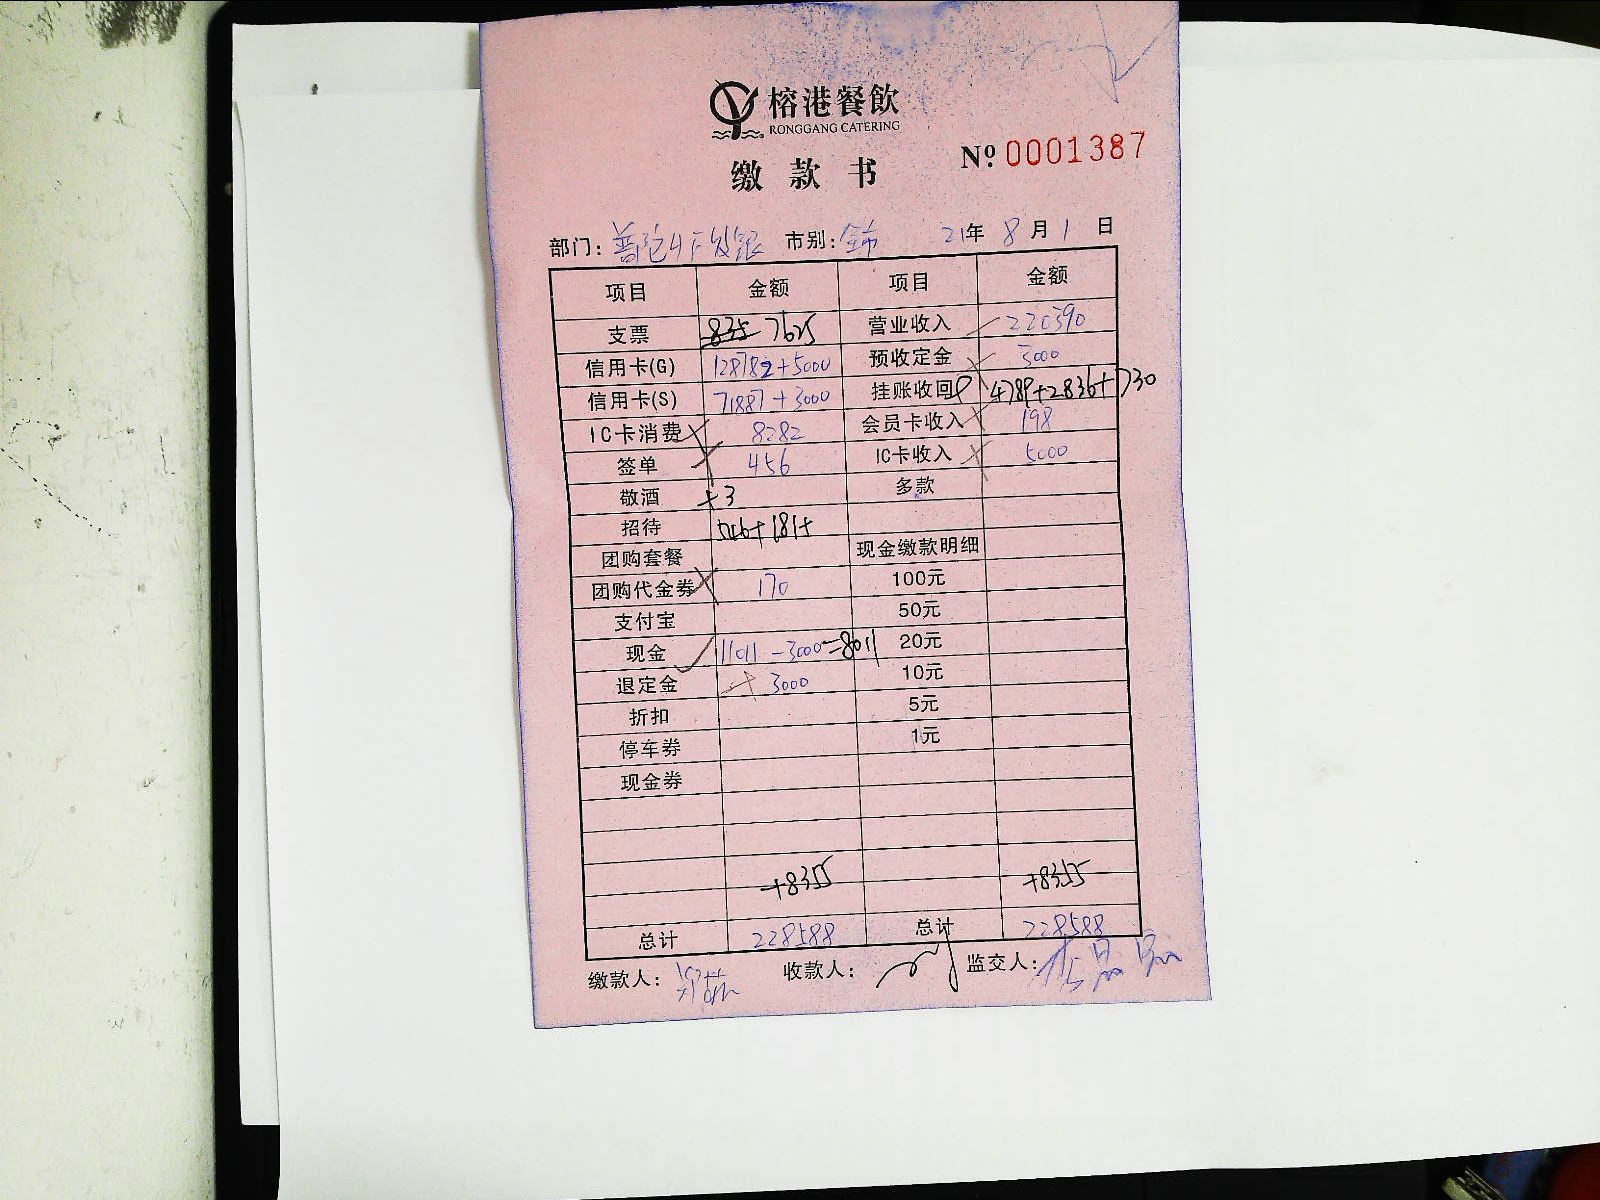 榕港餐飲
RONGGANG CATERING
缴款书
№ 0001387
部门: 普陀 市别: 全市 21年 8月1日
项目 金额 项目 金额
支票 835 7625 营业收入 220390
信用卡(G) 128782+5000 预收定金 3000
信用卡(S) 71887+3000 挂账收回 4789+2836+730
IC卡消费 8282 会员卡收入 198
签单 456 IC卡收入 5000
敬酒 +3 多款
招待 546+181+
团购套餐 现金缴款明细
团购代金券 170 100元
支付宝 50元
现金 11011-3000=8011 20元
退定金 3000 10元
折扣 5元
停车券 1元
现金券
+8355 +8355
总计 228588 总计 228588
缴款人: 收款人: 监交人: